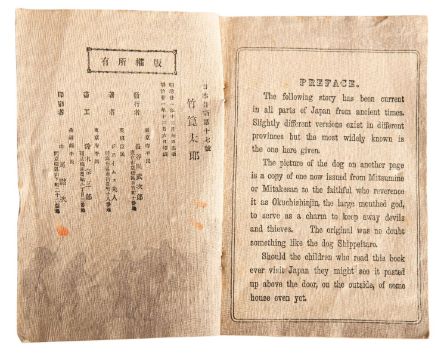 版權所有
日本昔噺第十七號
竹箆太郎
發行者
長谷川武次郎
著者
ゼームス夫人
畫工
鈴木宗三郎
印刷者
PREFACE.
The following story has been current
in all parts of Japan from ancient times.
Slightly different versions exist in different
provinces but the most widely known is
the one here given.
The picture of the dog on another page
is a copy of one now issued from Mitsumine
or Mitakesan to the faithful who reverence
it as Okuchishinjin, the large mouthed god,
to serve as a charm to keep away devils
and thieves. The original was no doubt
something like the dog Shippeitaro.
Should the children who read this book
ever visit Japan they might see it pasted
up above the door, on the outside, of some
house even yet.